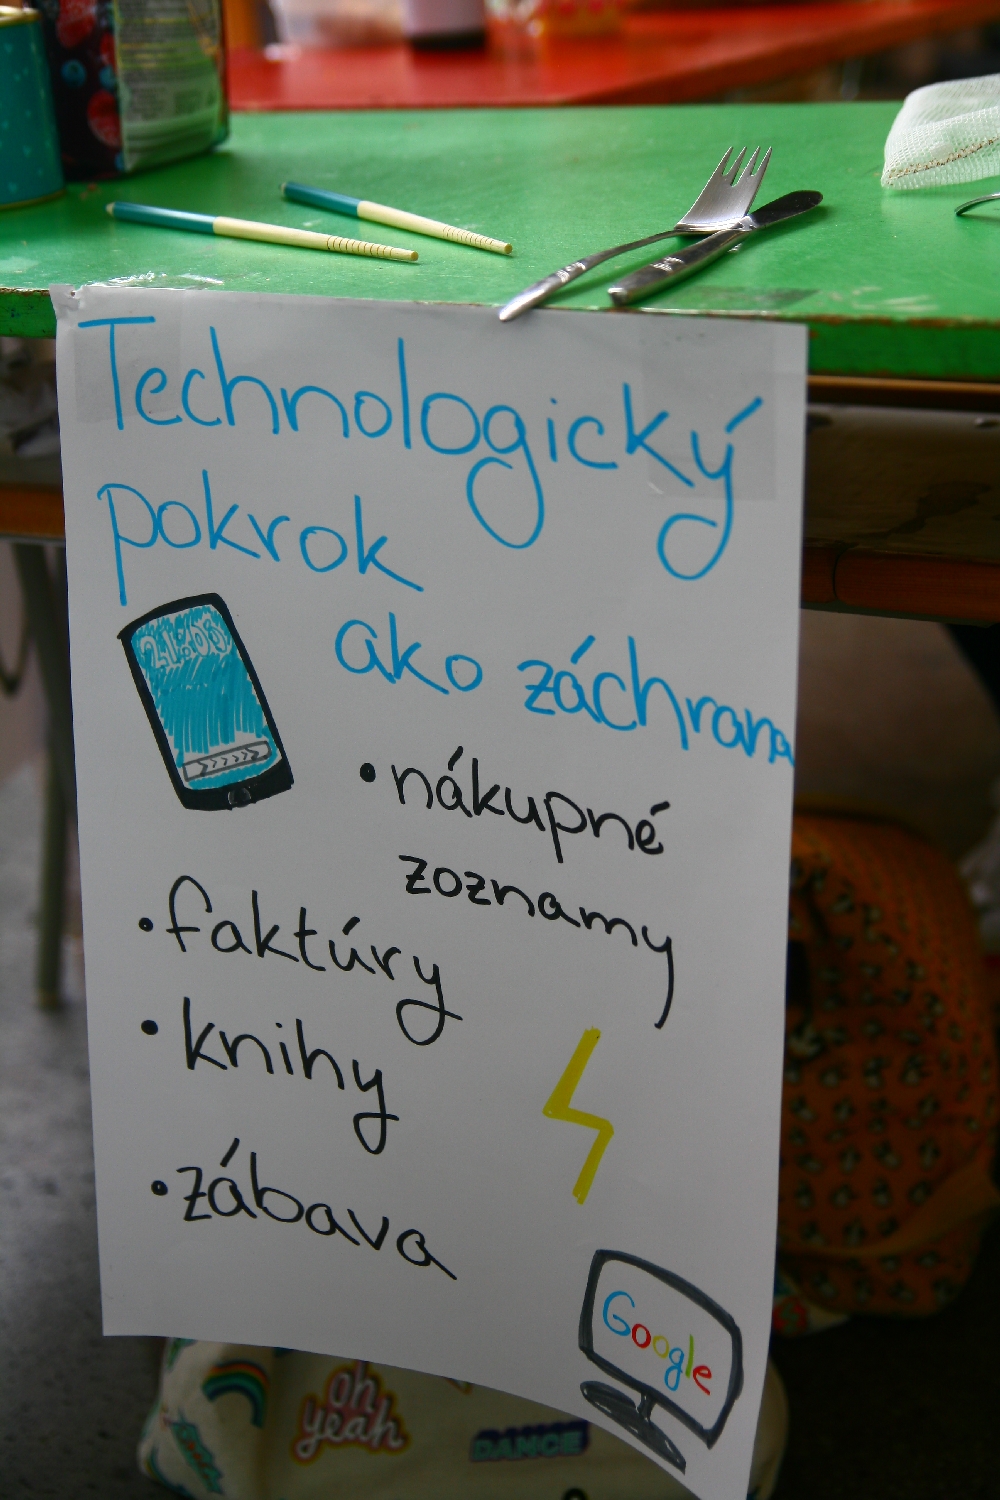 Technologický
pokrok
ako záchrana
• nákupné
zoznamy
• faktúry
• knihy
• zábava
Google
oh
yeah
DANCE